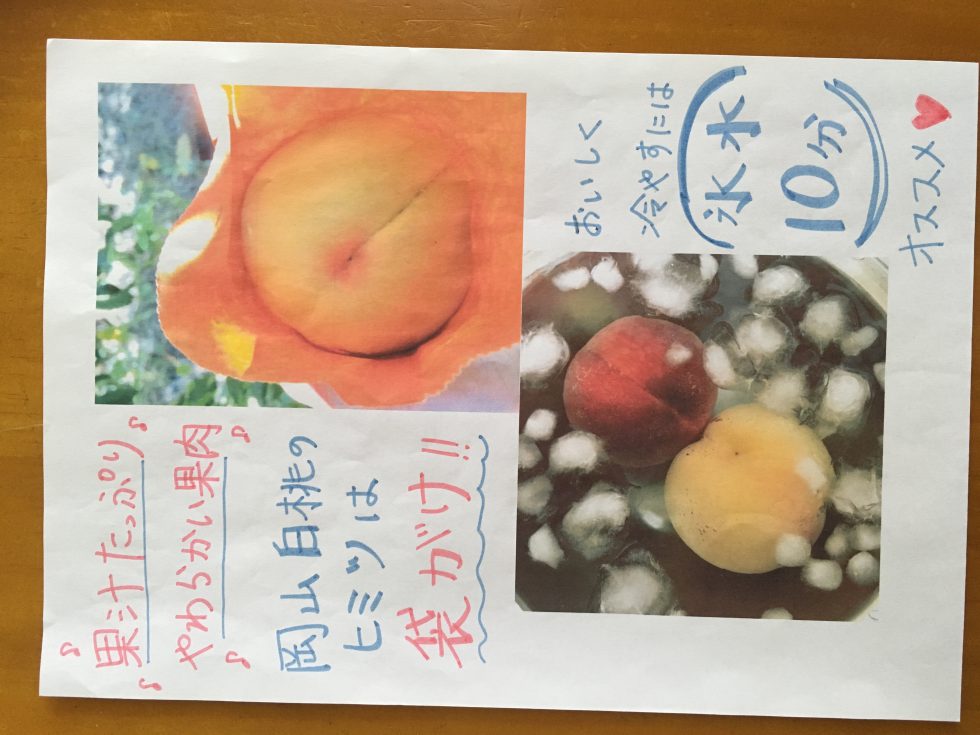 ♪果汁たっぷり♪
♪やわらかい果肉♪
岡山白桃の
ヒミツは
袋がけ!!
おいしく
冷やすには
(氷水
10分)
オススメ♥